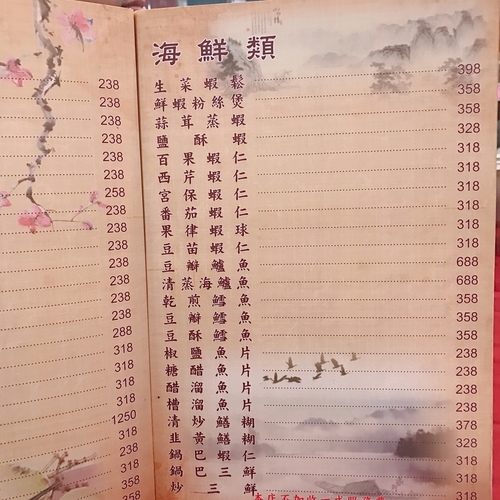 238
238
238
238
238
238
258
238
238
238
238
238
238
238
288
318
318
318
318
1250
318
358
318
358
海鮮類
生菜蝦鬆 398
鮮蝦粉絲煲 358
蒜茸蒸蝦 358
鹽酥蝦 328
百果蝦仁 318
西芹蝦仁 318
宮保蝦仁 318
番茄蝦仁 318
果律蝦球 318
豆苗蝦仁 318
豆瓣鱸魚 688
清蒸海鱸魚 688
乾煎鱈魚 358
豆瓣鱈魚 358
豆酥鱈魚 358
椒鹽魚片 238
糖醋魚片 238
醋溜魚片 238
槽溜魚片 238
清炒鱔糊 378
韭黃鱔糊 328
鍋巴蝦仁 318
鍋巴三鮮 318
炒三鮮 318